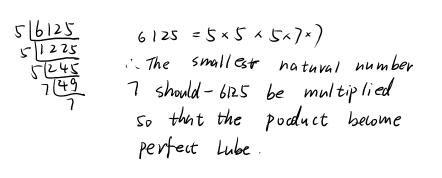 5 6125
5 1225
5 245
7 49
7
6125 = 5 × 5 × 5 × 7 × 7
∴ The smallest natural number
7 should - 6125 be multiplied
so that the poduct become
perfect Lube.